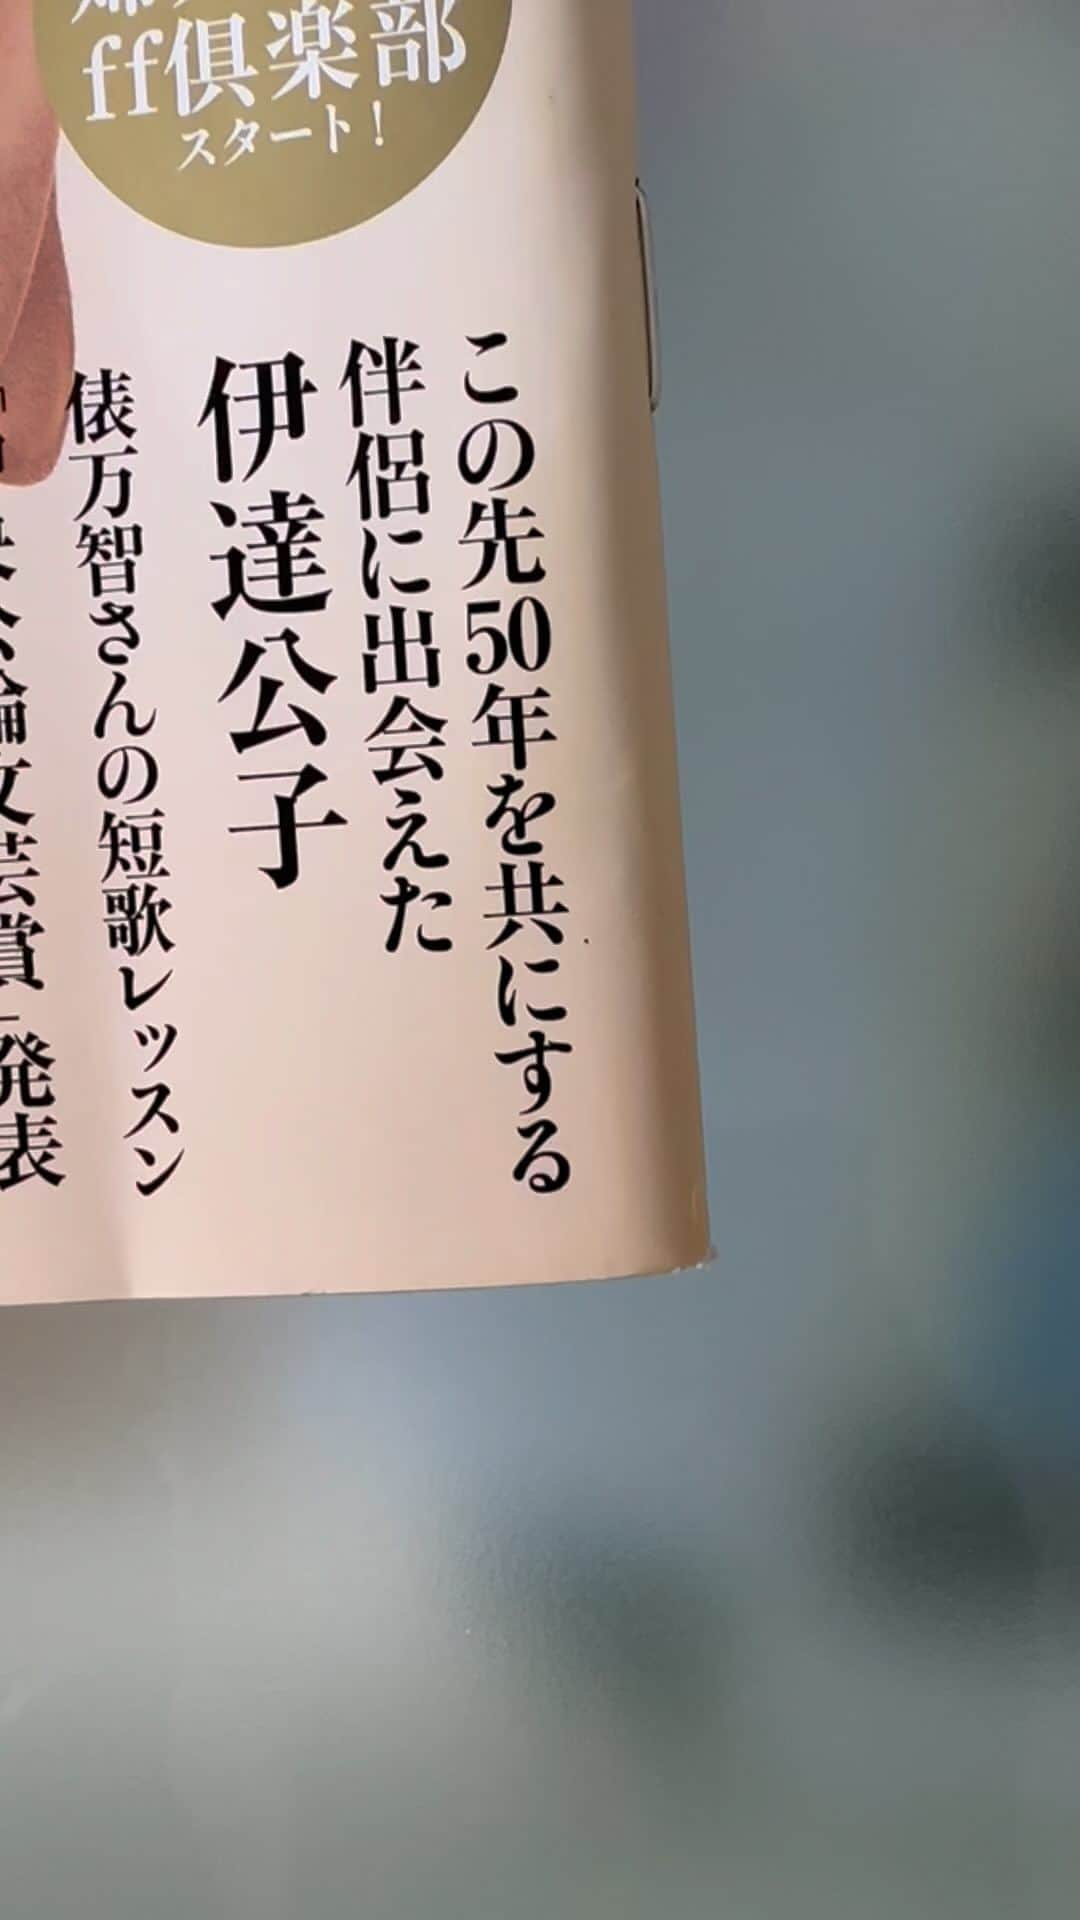 ff倶楽部
スタート!
この先50年を共にする
伴侶に出会えた
伊達公子
俵万智さんの短歌レッスン
論文芸賞」発表